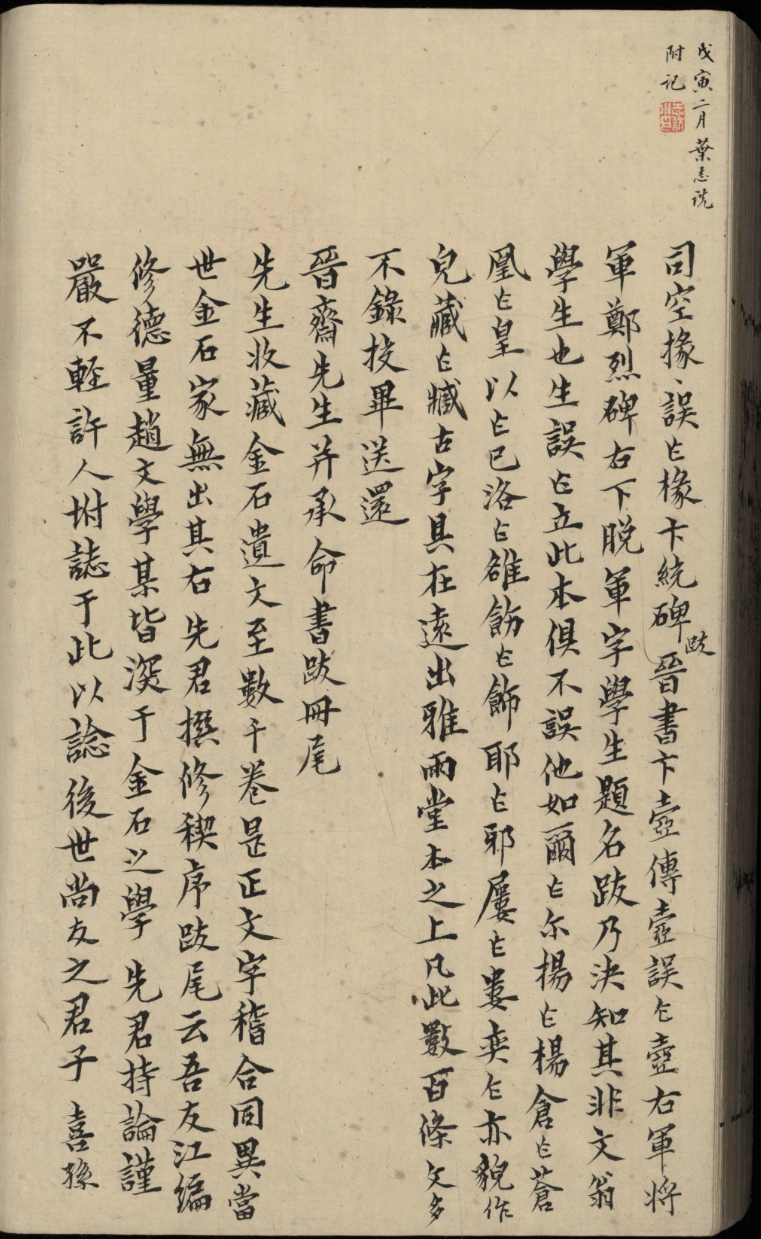 戊寅二月葉志詵
附記
司空掾、誤乍椽卞統碑跋晉書卞壼傳壼誤乍壺右軍將
軍鄭烈碑右下脫軍字學生題名跋乃決知其非文翁
學生也生誤乍立此本俱不誤他如爾乍尔揚乍楊倉乍蒼
凰乍皇以乍已洛乍雒飭乍飾耶乍邪屢乍婁奕乍亦貌作
皃藏乍臧古字具在遠出雅雨堂本之上凡此數百條文多
不錄挍畢送還
晉齋先生并承命書跋冊尾
先生收藏金石遺文至數千卷是正文字稽合同異當
世金石家無出其右先君撰修禊序跋尾云吾友江編
修德量趙文學某皆深于金石之學 先君持論謹
嚴不輕許人坿誌于此以諗後世尚友之君子 喜孫